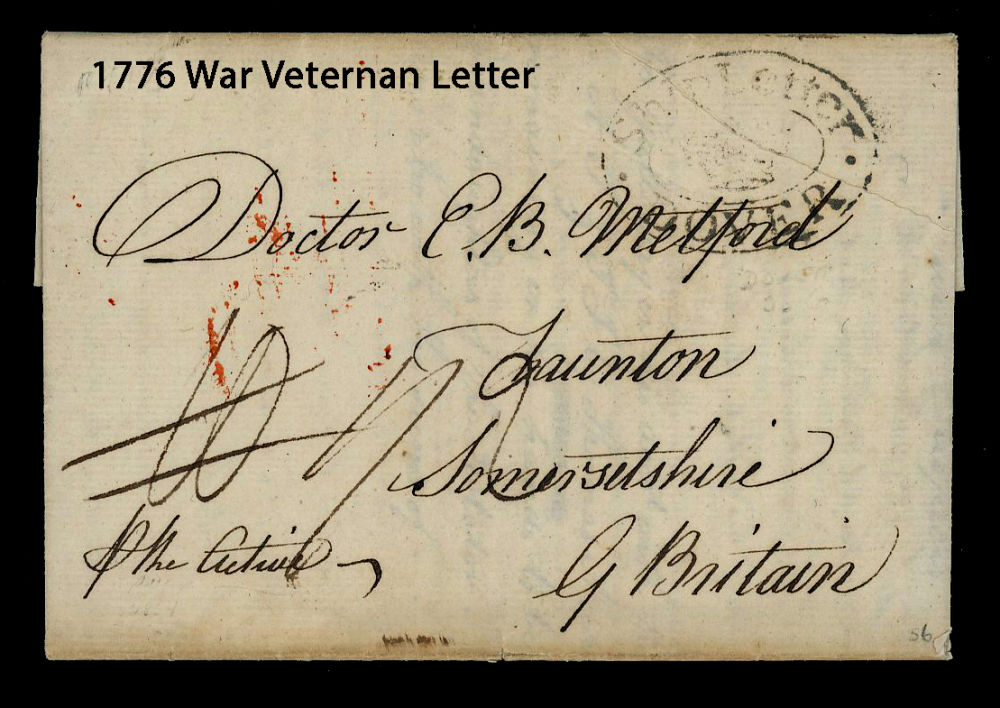 1776 War Veternan Letter
Ship Letter
DOVER
Doctor E. B. Metford
Taunton
Somersetshire
G Britain
the Active
56